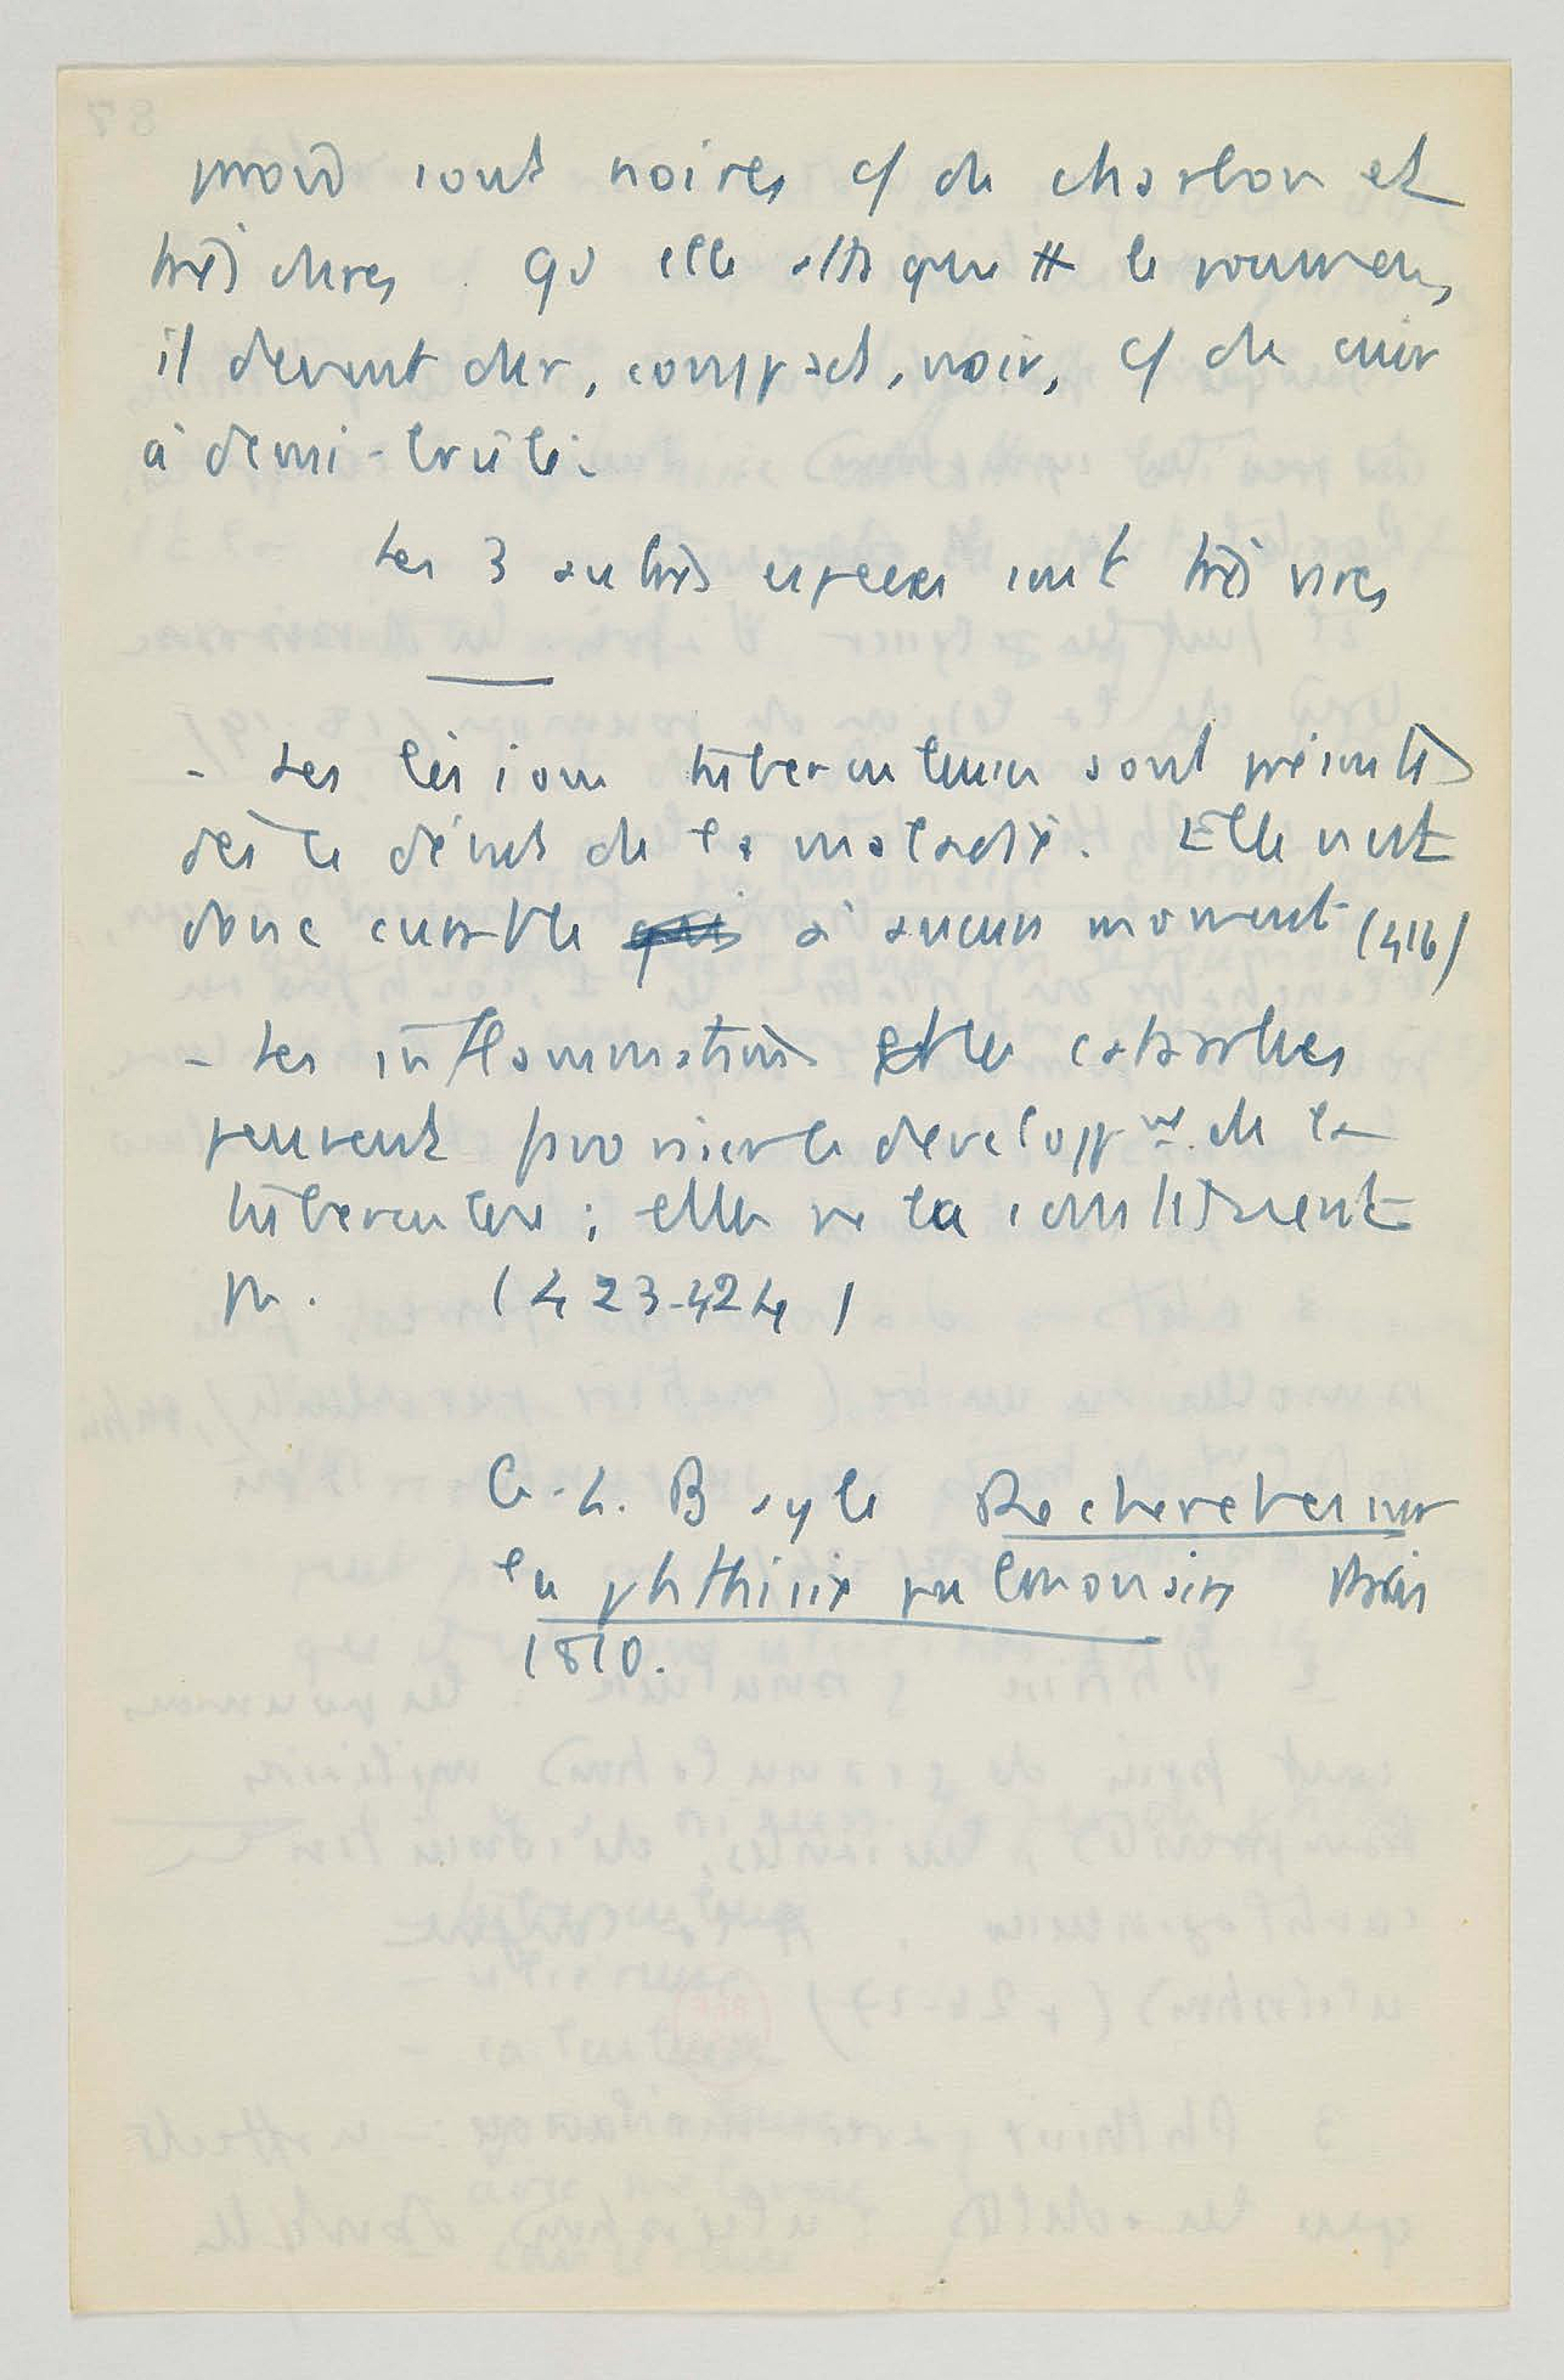 sont noires c/ du charbon et
très dures. Qd elle attaque tt le poumon,
il devient dur, compact, noir, c/ du cuir
à demi-brûlé.
Les 3 autres espèces sont très rares
- Les lésions tuberculeuses sont présentes
dès le début de la maladie. Elle n'est
donc curable à aucun moment (416)
- Les inflammations et les catarrhes
peuvent le developpmt. de la
tuberculose ; elles ne la constituent
pas. (423-424)
G.-L. Bayle Recherches sur
la phthisie pulmonaire Paris
1810.